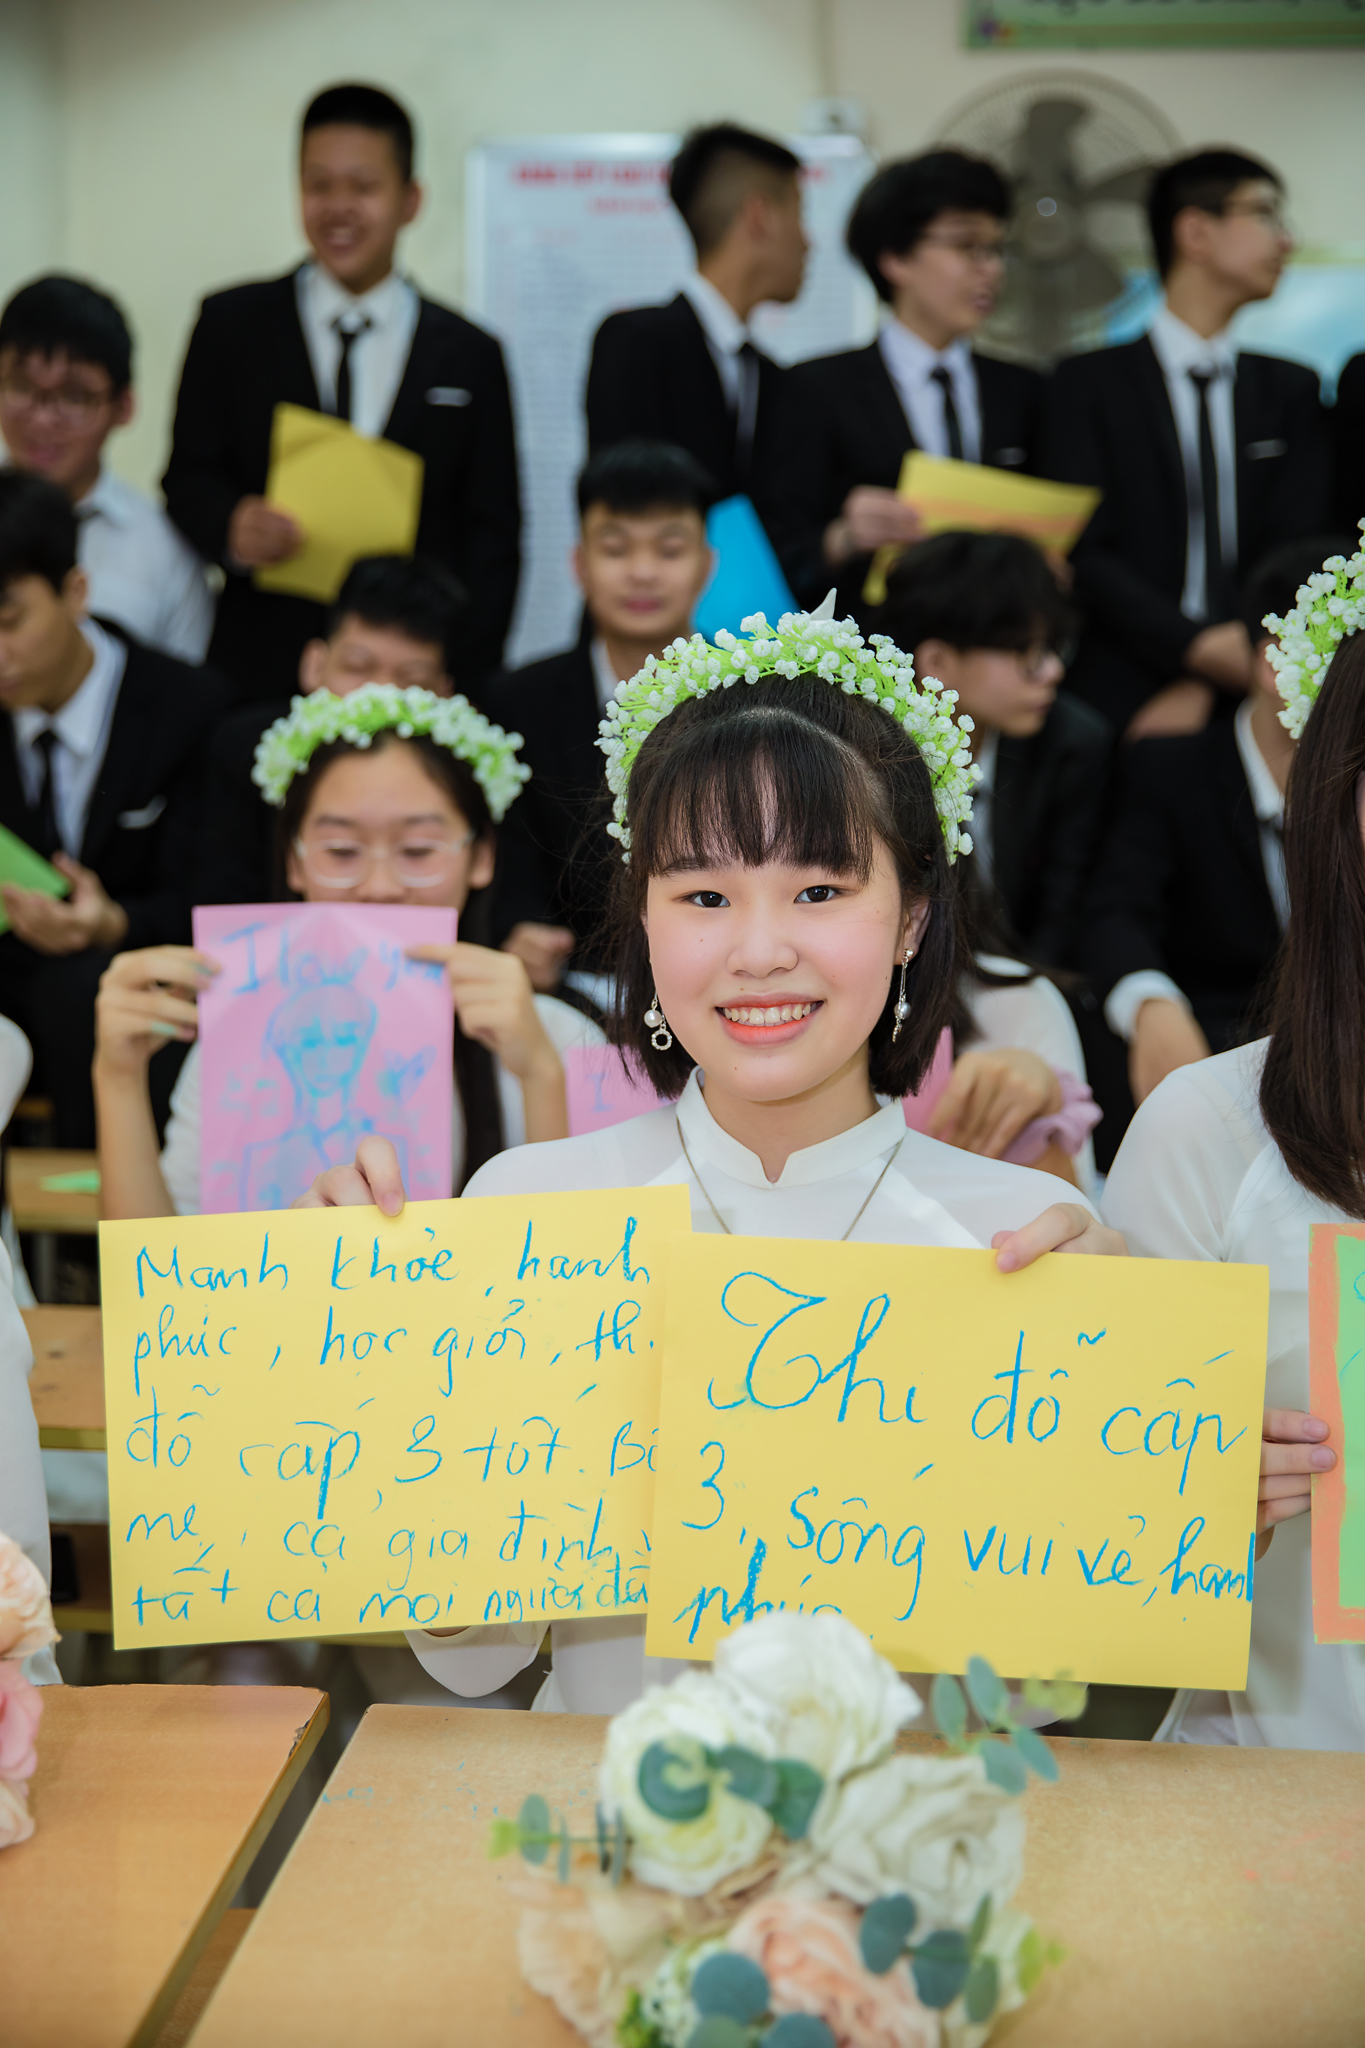 I love you
Mạnh khỏe, hạnh
phúc, học giỏi, th
đỗ cấp 3 tốt. Bố
mẹ, cả gia đình
tất cả mọi người đề
Thi đỗ cấp
3, sống vui vẻ, hạnh
phúc